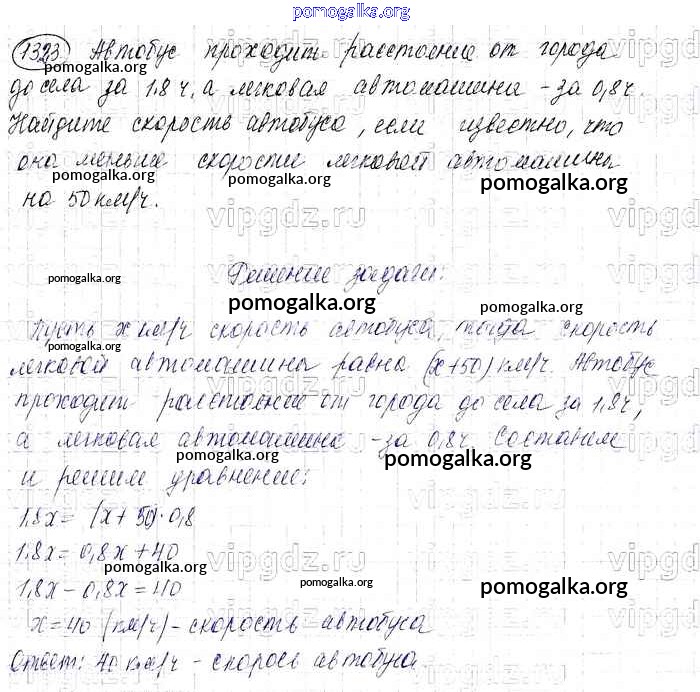 pomogalka.org
1323 Автобус проходит расстояние от города
pomogalka.org
до села за 1.8 ч, а легковая автомашина - за 0,8 ч.
pomogalka.org
Найдите скорость автобуса, если известно, что
она меньше скорости легковой автомашины
pomogalka.org pomogalka.org pomogalka.org
на 50 км/ч. vipgdz.ru vipgdz.ru
Решение задачи:
pomogalka.org
pomogalka.org pomogalka.org
Пусть x км/ч скорость автобуса, тогда скорость
pomogalka.org
легковой автомашины равна (x+50) км/ч. Автобус
проходит расстояние от города до села за 1,8 ч,
а легковая автомашина - за 0,8 ч. Составим
pomogalka.org
и решим уравнение:
1,8x = (x + 50) · 0,8
1.8x = 0,8x + 40 vipgdz.ru vipgdz.ru
pomogalka.org
1,8x - 0,8x = 40 pomogalka.org pomogalka.org
x = 40 (км/ч) - скорость автобуса
Ответ: 40 км/ч - скорость автобуса.